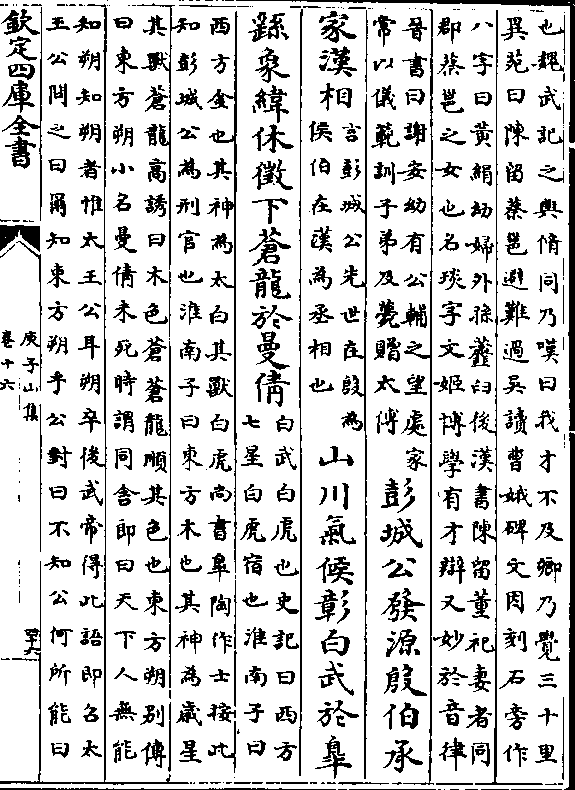 也魏武記之與脩同乃嘆曰我才不及卿乃覺三十里
異苑曰陳留蔡邕避難過吳讀曹娥碑文因刻石旁作
八字曰黃絹幼婦外孫虀臼後漢書陳留董祀妻者同
郡蔡邕之女也名琰字文姬博學有才辯又妙於音律
晉書曰謝安幼有公輔之望處家
常以儀範訓子弟及薨贈太傅
彭城公發源殷伯承
家漢相
言彭城公先世在殷為
侯伯在漢為丞相也
山川氣候彰白武於臯
繇象緯休徵下蒼龍於曼倩
白武白虎也史記曰西方
七星白虎宿也淮南子曰
西方金也其神為太白其獸白虎尚書臯陶作士按此
知彭城公為刑官也淮南子曰東方木也其神為歲星
其獸蒼龍高誘曰木色蒼蒼龍順其色也東方朔别傳
曰東方朔小名曼倩未死時謂同舍郎曰天下人無能
知朔知朔者惟太王公耳朔卒後武帝得此語即召太
王公問之曰爾知東方朔乎公對曰不知公何所能曰
欽定四庫全書
庾子山集
卷十六